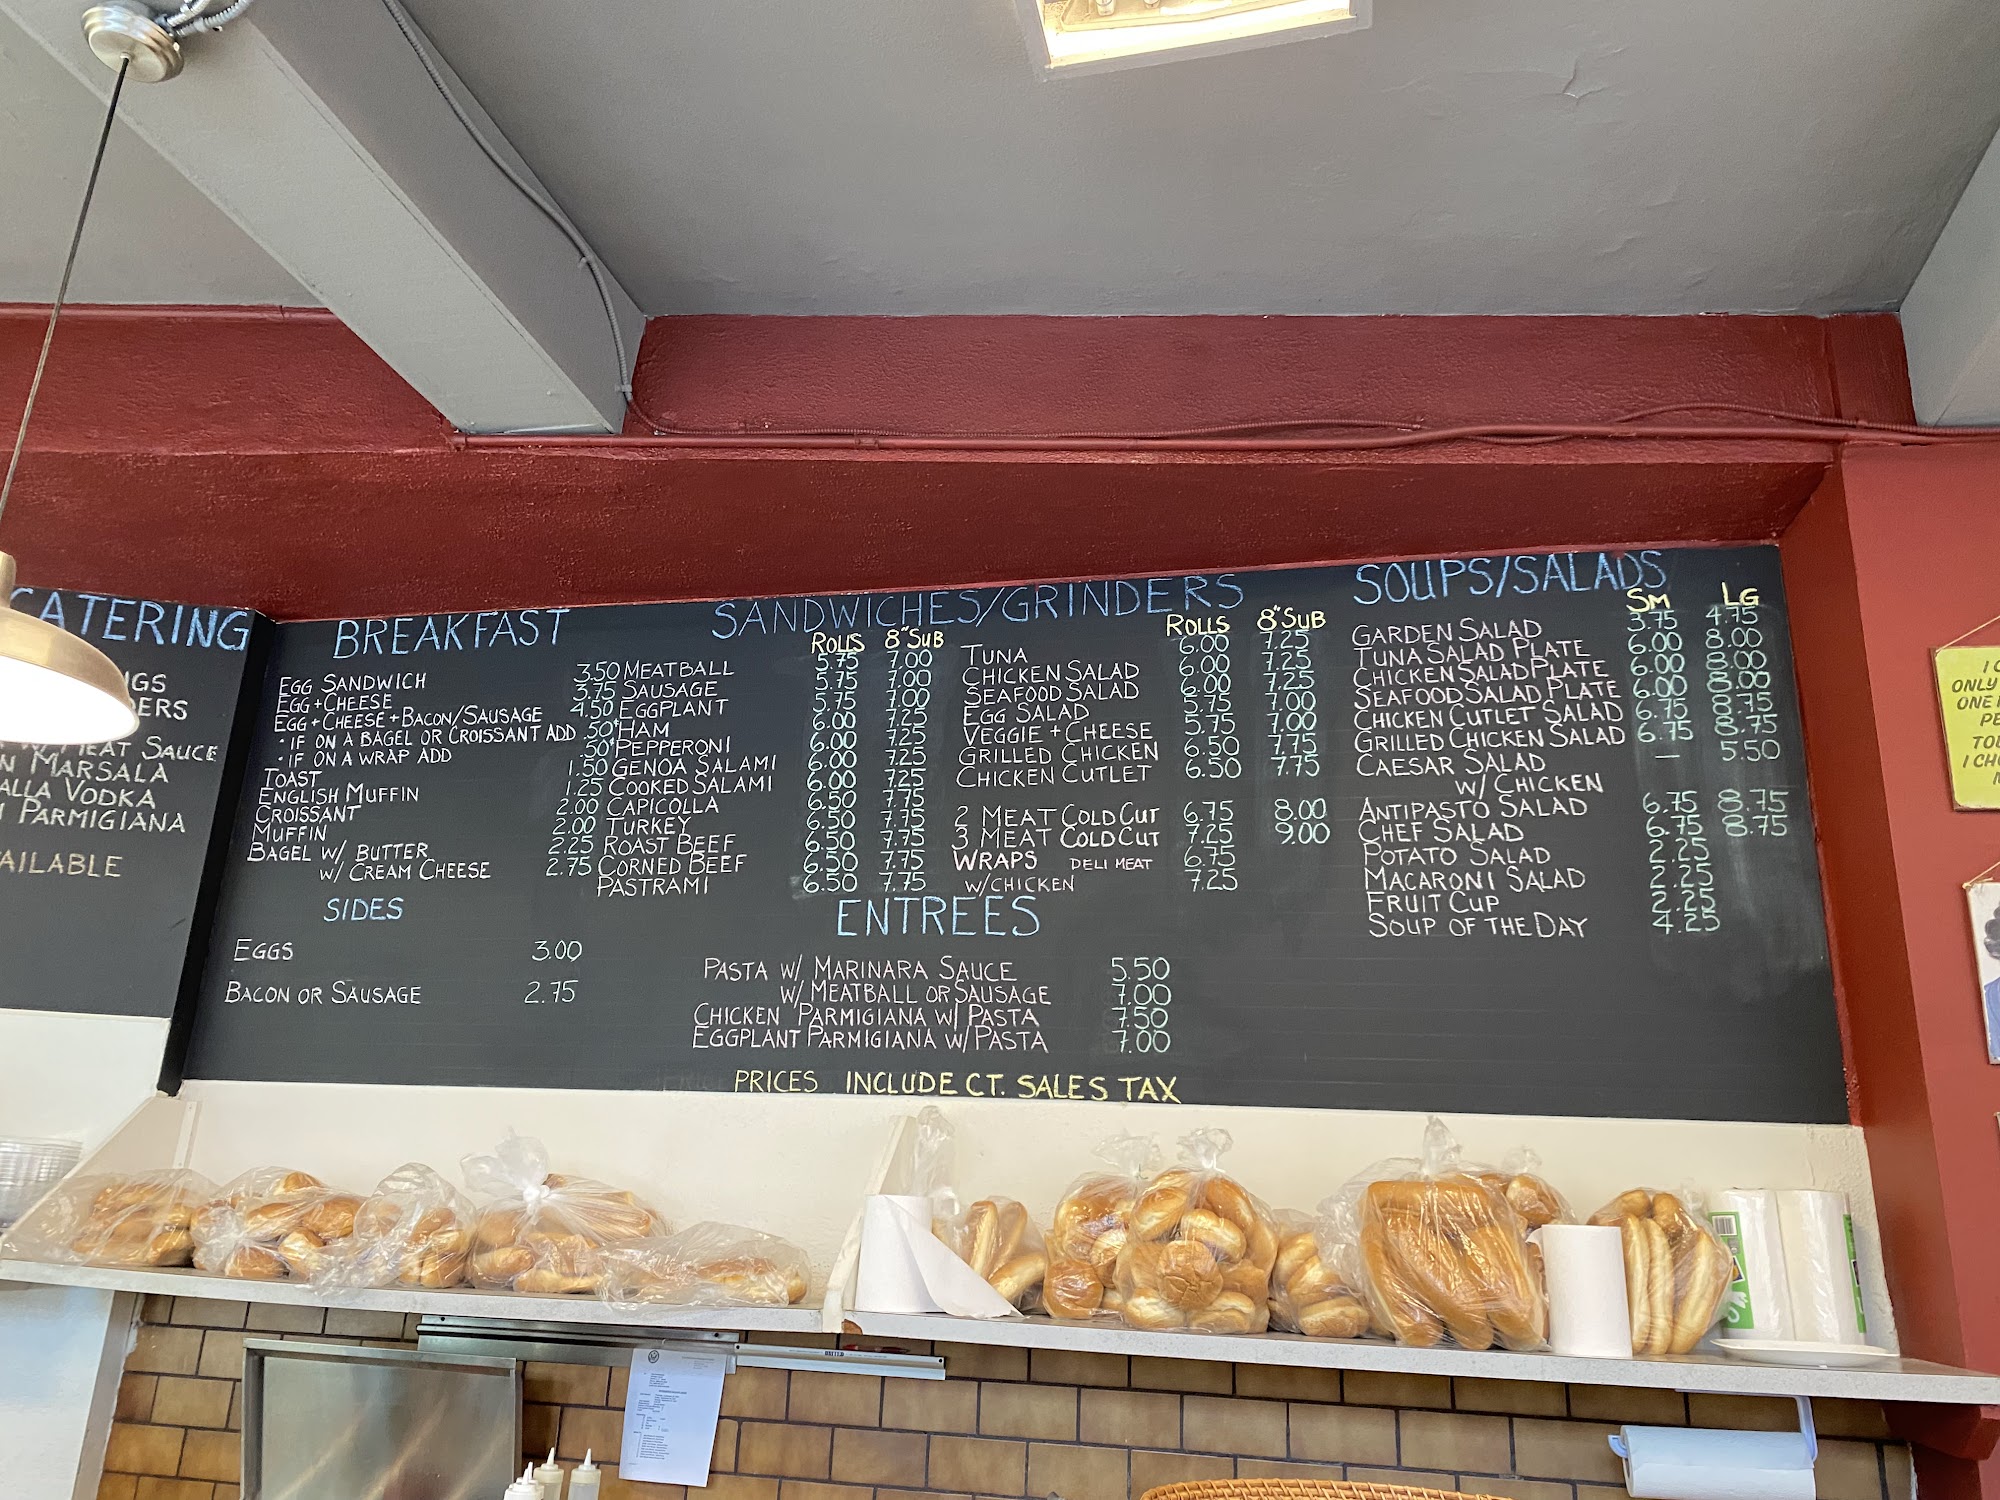 CATERING
NGS
DERS
W/ MEAT SAUCE
N MARSALA
ALLA VODKA
PARMIGIANA
AILABLE
BREAKFAST
EGG SANDWICH 3.50
EGG + CHEESE 3.75
EGG + CHEESE + BACON/SAUSAGE 4.50
• IF ON A BAGEL OR CROISSANT ADD .50¢
• IF ON A WRAP ADD .50¢
TOAST 1.50
ENGLISH MUFFIN 1.25
CROISSANT 2.00
MUFFIN 2.00
BAGEL W/ BUTTER 2.25
W/ CREAM CHEESE 2.75
SIDES
EGGS 3.00
BACON OR SAUSAGE 2.75
SANDWICHES/GRINDERS
ROLLS 8" SUB
MEATBALL 5.75 7.00
SAUSAGE 5.75 7.00
EGGPLANT 5.75 7.00
HAM 6.00 7.25
PEPPERONI 6.00 7.25
GENOA SALAMI 6.00 7.25
COOKED SALAMI 6.00 7.25
CAPICOLLA 6.50 7.75
TURKEY 6.50 7.75
ROAST BEEF 6.50 7.75
CORNED BEEF 6.50 7.75
PASTRAMI 6.50 7.75
ROLLS 8" SUB
TUNA 6.00 7.25
CHICKEN SALAD 6.00 7.25
SEAFOOD SALAD 6.00 7.25
EGG SALAD 5.75 7.00
VEGGIE + CHEESE 5.75 7.00
GRILLED CHICKEN 6.50 7.75
CHICKEN CUTLET 6.50 7.75
2 MEAT COLD CUT 6.75 8.00
3 MEAT COLD CUT 7.25 9.00
WRAPS DELI MEAT 6.75
W/CHICKEN 7.25
ENTREES
PASTA W/ MARINARA SAUCE 5.50
W/ MEATBALL OR SAUSAGE 7.00
CHICKEN PARMIGIANA W/ PASTA 7.50
EGGPLANT PARMIGIANA W/ PASTA 7.00
PRICES INCLUDE CT. SALES TAX
SOUPS/SALADS
SM LG
GARDEN SALAD 3.75 4.75
TUNA SALAD PLATE 6.00 8.00
CHICKEN SALAD PLATE 6.00 8.00
SEAFOOD SALAD PLATE 6.00 8.00
CHICKEN CUTLET SALAD 6.75 8.75
GRILLED CHICKEN SALAD 6.75 8.75
CAESAR SALAD — 5.50
W/ CHICKEN
ANTIPASTO SALAD 6.75 8.75
CHEF SALAD 6.75 8.75
POTATO SALAD 2.25
MACARONI SALAD 2.25
FRUIT CUP 2.25
SOUP OF THE DAY 4.25
I C
ONLY
ONE
PE
TO
I CH